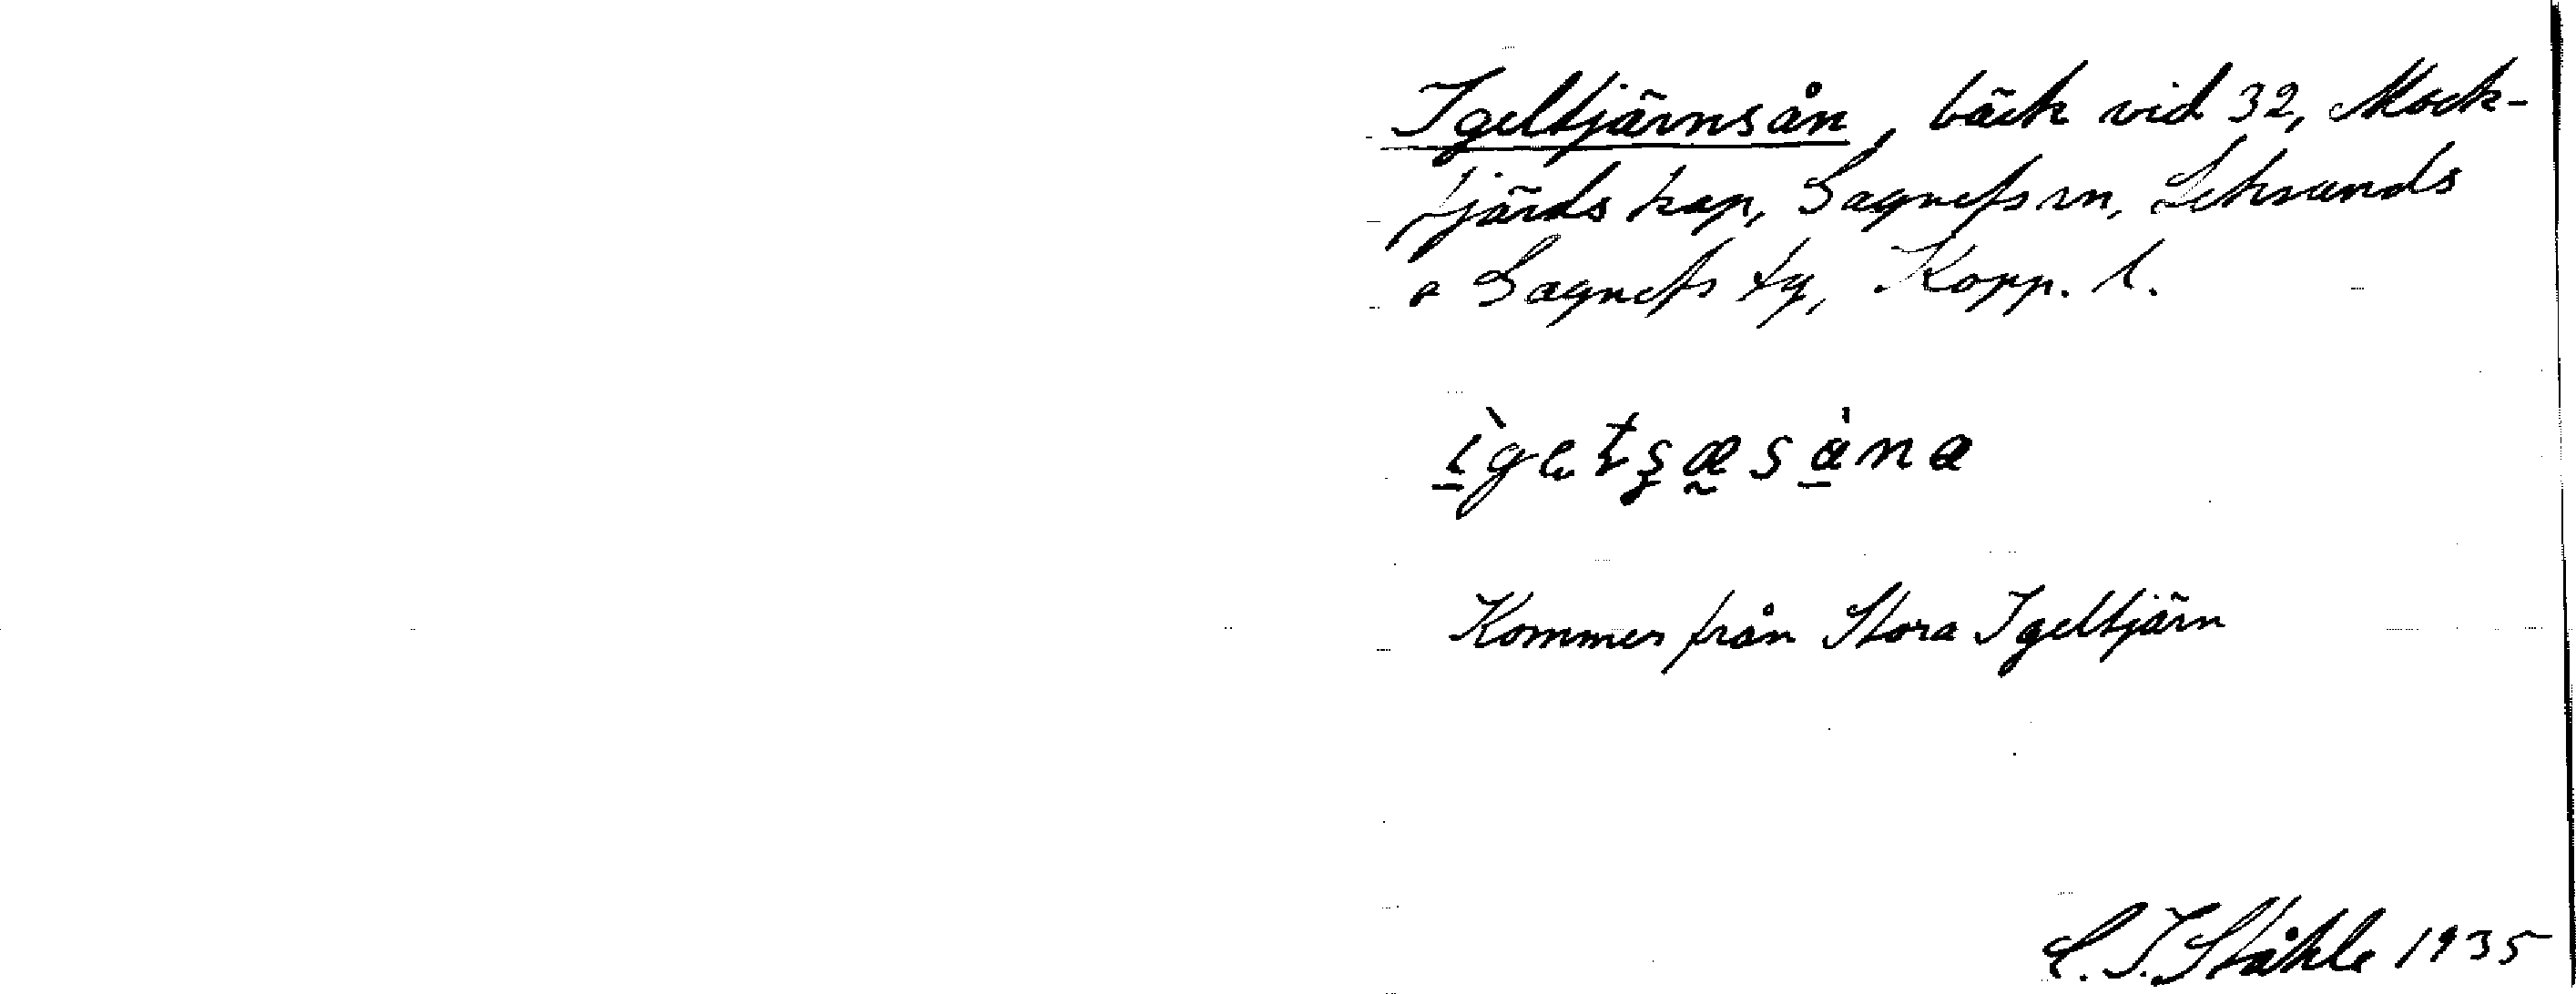 Igeltjärnsån, bäck vid 32, Mock-
fjärds kap, Gagnefs sn, Leksands
o Gagnefs tg, Kopp. l.
Kommer från Stora Igeltjärn
C. I. Ståhle 1935